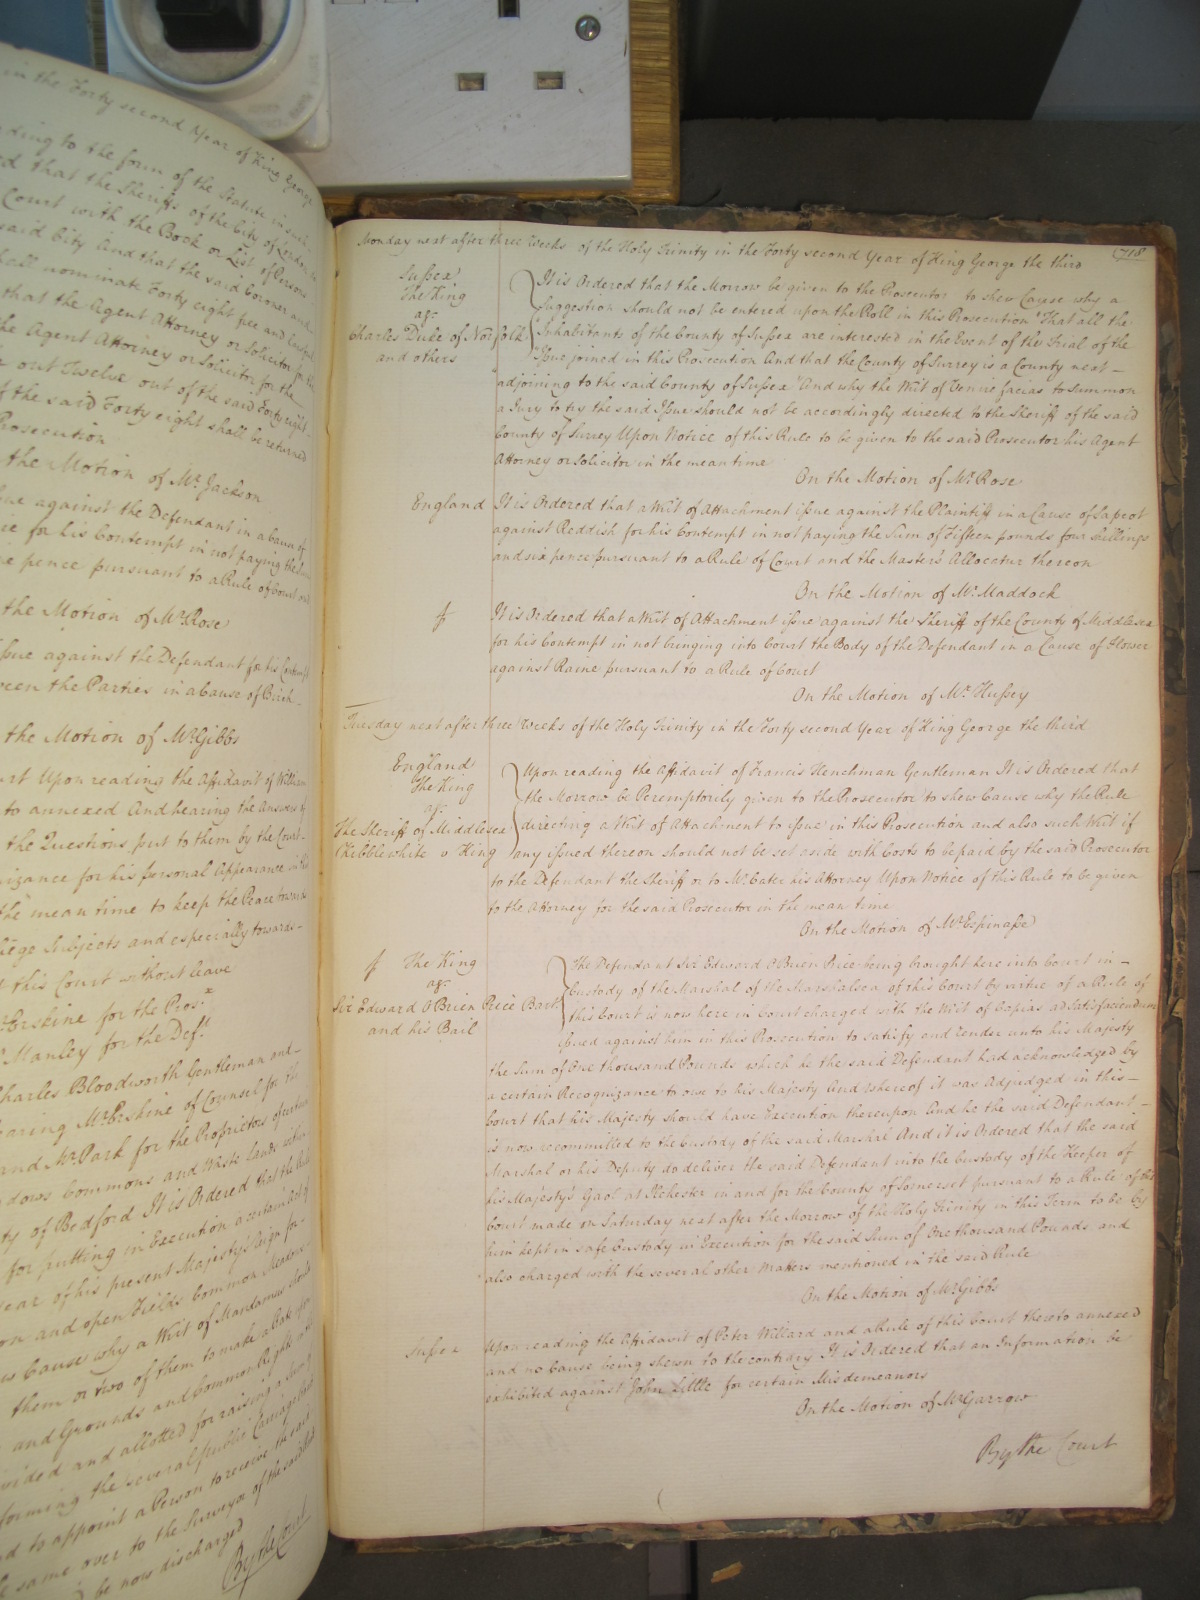 in the Forty second Year of King George
ding to the form of the Statute in such
ed that the Sheriffs of the City of London
Court with the Book or List of Persons
said City And that the said Coroner and
shall nominate Forty eight free and lawful
that the Agent Attorney or Solicitor for the
the Agent Attorney or Solicitor for the
out Twelve out of the said Forty eight
f the said Forty eight shall be returned
Prosecution
the Motion of Mr. Jackson
sue against the Defendant in a Cause of
for his Contempt in not paying the
pence pursuant to a Rule of Court
the Motion of Mr. Rose
ssue against the Defendant for his Contempt
ween the Parties in a Cause of Birch
the Motion of Mr. Gibbs
Upon reading the Affidavit of William
to annexed And hearing the Answers of
the Questions put to them by the Court
nizance for his personal Appearance
the mean time to keep the Peace towards
liege Subjects and especially towards
this Court without leave
Erskine for the Pros.r
Manley for the Def.t
Charles Bloodworth Gentleman and
earing Mr. Erskine of Counsel for the
and Mr. Park for the Proprietors of
dows Commons and Waste Lands
ty of Bedford It is Ordered that the Rule
for putting in Execution a certain Act of
Year of his present Majesty's Reign for
and open Fields Common Meadows
Cause why a Writ of Mandamus should
them or two of them to make a Rate
and Grounds and Common Right
ivided and allotted for raising a Sum
forming the several public Carriage
to appoint a Person to receive the said
same over to the Surveyor of the said
be now discharged
By the Court
Monday next after three Weeks of the Holy Trinity in the Forty second Year of King George the third
718
Sussex
The King
agt.
Charles Duke of Norfolk
and others
It is Ordered that the Morrow be given to the Prosecutor to shew Cause why a
Suggestion should not be entered upon the Roll in this Prosecution "That all the
"Inhabitants of the County of Sussex are interested in the Event of the Trial of the
"Issue joined in this Prosecution And that the County of Surrey is a County next
"adjoining to the said County of Sussex" And why the Writ of Venire facias to summon
a Jury to try the said Issue should not be accordingly directed to the Sheriff of the said
County of Surrey Upon Notice of this Rule to be given to the said Prosecutor his Agent
Attorney or Solicitor in the mean time
On the Motion of Mr. Rose
England
It is Ordered that a Writ of Attachment issue against the Plaintiff in a Cause of Laprot
against Reddish for his Contempt in not paying the Sum of Fifteen pounds four shillings
and six pence pursuant to a Rule of Court and the Master's Allocatur thereon
On the Motion of Mr. Maddock
It is Ordered that a Writ of Attachment issue against the Sheriff of the County of Middlesex
for his Contempt in not bringing into Court the Body of the Defendant in a Cause of Flower
against Raine pursuant to a Rule of Court
On the Motion of Mr. Hussey
Tuesday next after three Weeks of the Holy Trinity in the Forty second Year of King George the third
England
The King
agt.
The Sheriff of Middlesex
Kibblewhite v King
Upon reading the Affidavit of Francis Henchman Gentleman It is Ordered that
the Morrow be Peremptorily given to the Prosecutor to shew Cause why the Rule
directing a Writ of Attachment to issue in this Prosecution and also such Writ if
any issued thereon should not be set aside with Costs to be paid by the said Prosecutor
to the Defendant the Sheriff or to Mr. Cater his Attorney Upon Notice of this Rule to be given
to the Attorney for the said Prosecutor in the mean time
On the Motion of Mr. Espinasse
The King
agt.
Sir Edward O'Brien Price Bart.
and his Bail
The Defendant Sir Edward O'Brien Price being brought here into Court in
Custody of the Marshal of the Marshalsea of this Court by virtue of a Rule of
this Court is now here in Court charged with the Writ of Capias ad Satisfaciendum
issued against him in this Prosecution to satisfy and render unto his Majesty
the Sum of One thousand Pounds which he the said Defendant had acknowledged by
a certain Recognizance to owe to his Majesty And whereof it was Adjudged in this
Court that his Majesty should have Execution thereupon And he the said Defendant
is now recommitted to the Custody of the said Marshal And it is Ordered that the said
Marshal or his Deputy do deliver the said Defendant into the Custody of the Keeper of
his Majesty's Gaol at Ilchester in and for the County of Somerset pursuant to a Rule of this
Court made on Saturday next after the Morrow of the Holy Trinity in this Term to be by
him kept in safe Custody in Execution for the said Sum of One thousand Pounds and
also charged with the several other Matters mentioned in the said Rule
On the Motion of Mr. Gibbs
Sussex
Upon reading the Affidavit of Peter Willard and a Rule of this Court thereto annexed
and no Cause being shewn to the contrary It is Ordered that an Information be
exhibited against John Little for certain Misdemeanors
On the Motion of Mr. Garrow
By the Court